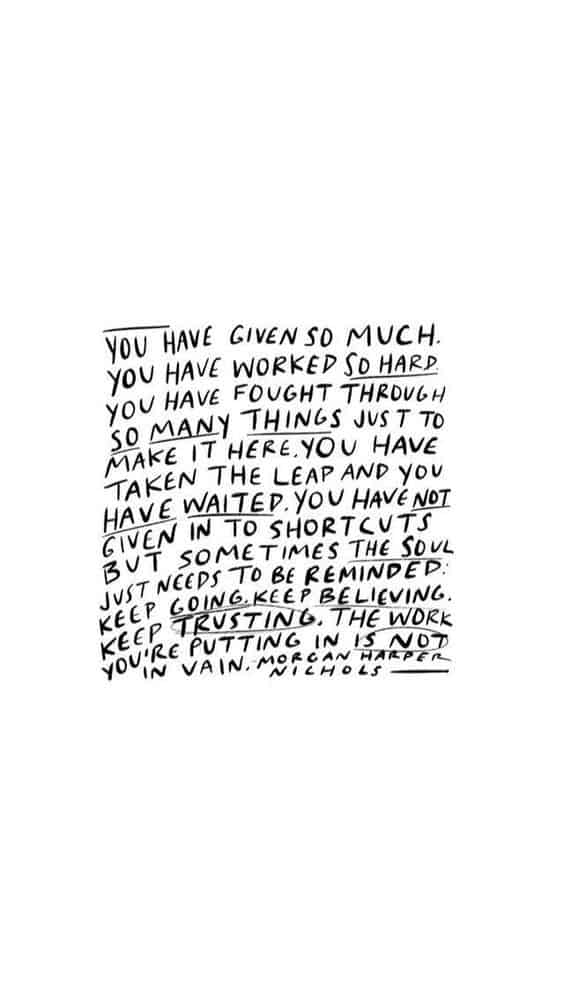 YOU HAVE GIVEN SO MUCH.
YOU HAVE WORKED SO HARD.
YOU HAVE FOUGHT THROUGH
SO MANY THINGS JUST TO
MAKE IT HERE. YOU HAVE
TAKEN THE LEAP AND YOU
HAVE WAITED. YOU HAVE NOT
GIVEN IN TO SHORTCUTS
BUT SOMETIMES THE SOUL
JUST NEEDS TO BE REMINDED:
KEEP GOING. KEEP BELIEVING.
KEEP TRUSTING. THE WORK
YOU'RE PUTTING IN IS NOT
IN VAIN. -MORGAN HARPER
NICHOLS